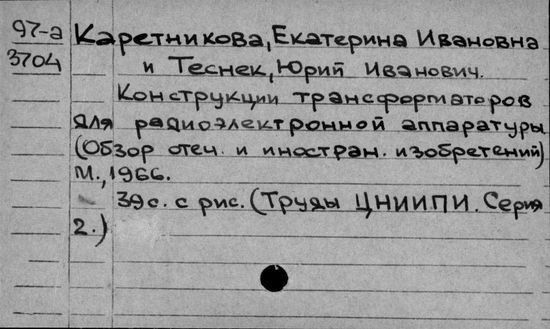 97-а
3704
Каретникова, Екатерина Ивановна
и Теснек, Юрий Иванович.
Конструкции трансформаторов
для радиоэлектронной аппаратуры
(Обзор отеч. и иностран. изобретений)
М., 1966.
39с. с рис. (Труды ЦНИИПИ. Серия
2.)